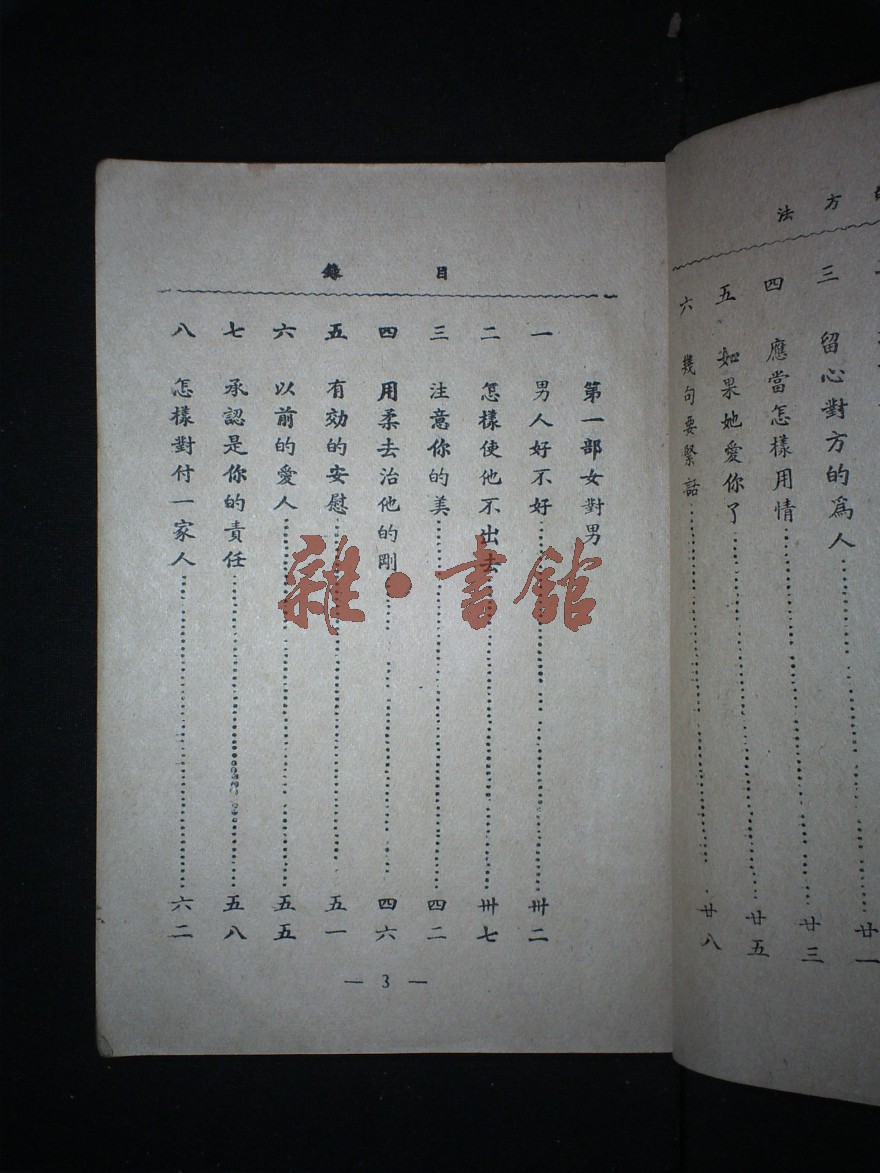 法方
三 留心對方的爲人 廿一
四 應當怎樣用情 廿三
五 如果她愛你了 廿五
六 幾句要緊話 廿八
目錄
第一部女對男
一 男人好不好 卅二
二 怎樣使他不出去 卅七
三 注意你的美 四二
四 用柔去治他的剛 四六
五 有効的安慰 五一
六 以前的愛人 五五
七 承認是你的責任 五八
八 怎樣對付一家人 六二
— 3 —
雜·書館